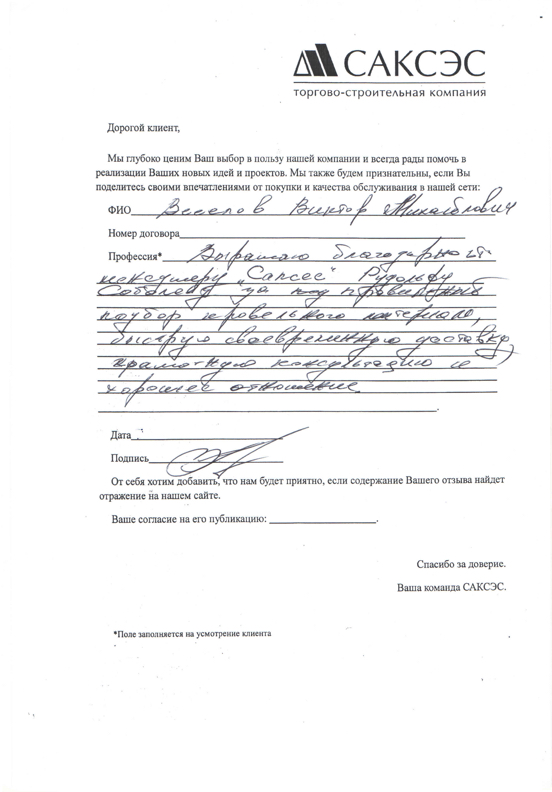 САКСЭС
торгово-строительная компания
Дорогой клиент,
Мы глубоко ценим Ваш выбор в пользу нашей компании и всегда рады помочь в
реализации Ваших новых идей и проектов. Мы также будем признательны, если Вы
поделитесь своими впечатлениями от покупки и качества обслуживания в нашей сети:
ФИО Веселов Виктор Михайлович
Номер договора
Профессия* Выражаю благодарность
менеджеру „Саксес" Рудольфу
за
подбор кровельного материала,
быструю своевременную доставку,
грамотную консультацию и
хорошее отношение.
Дата
Подпись
От себя хотим добавить, что нам будет приятно, если содержание Вашего отзыва найдет
отражение на нашем сайте.
Ваше согласие на его публикацию: ____________________.
Спасибо за доверие.
Ваша команда САКСЭС.
*Поле заполняется на усмотрение клиента